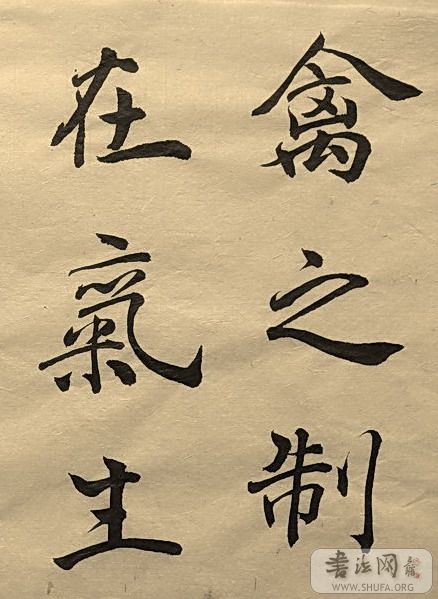 禽之制
在氣生
書法网
WWW.SHUFA.ORG